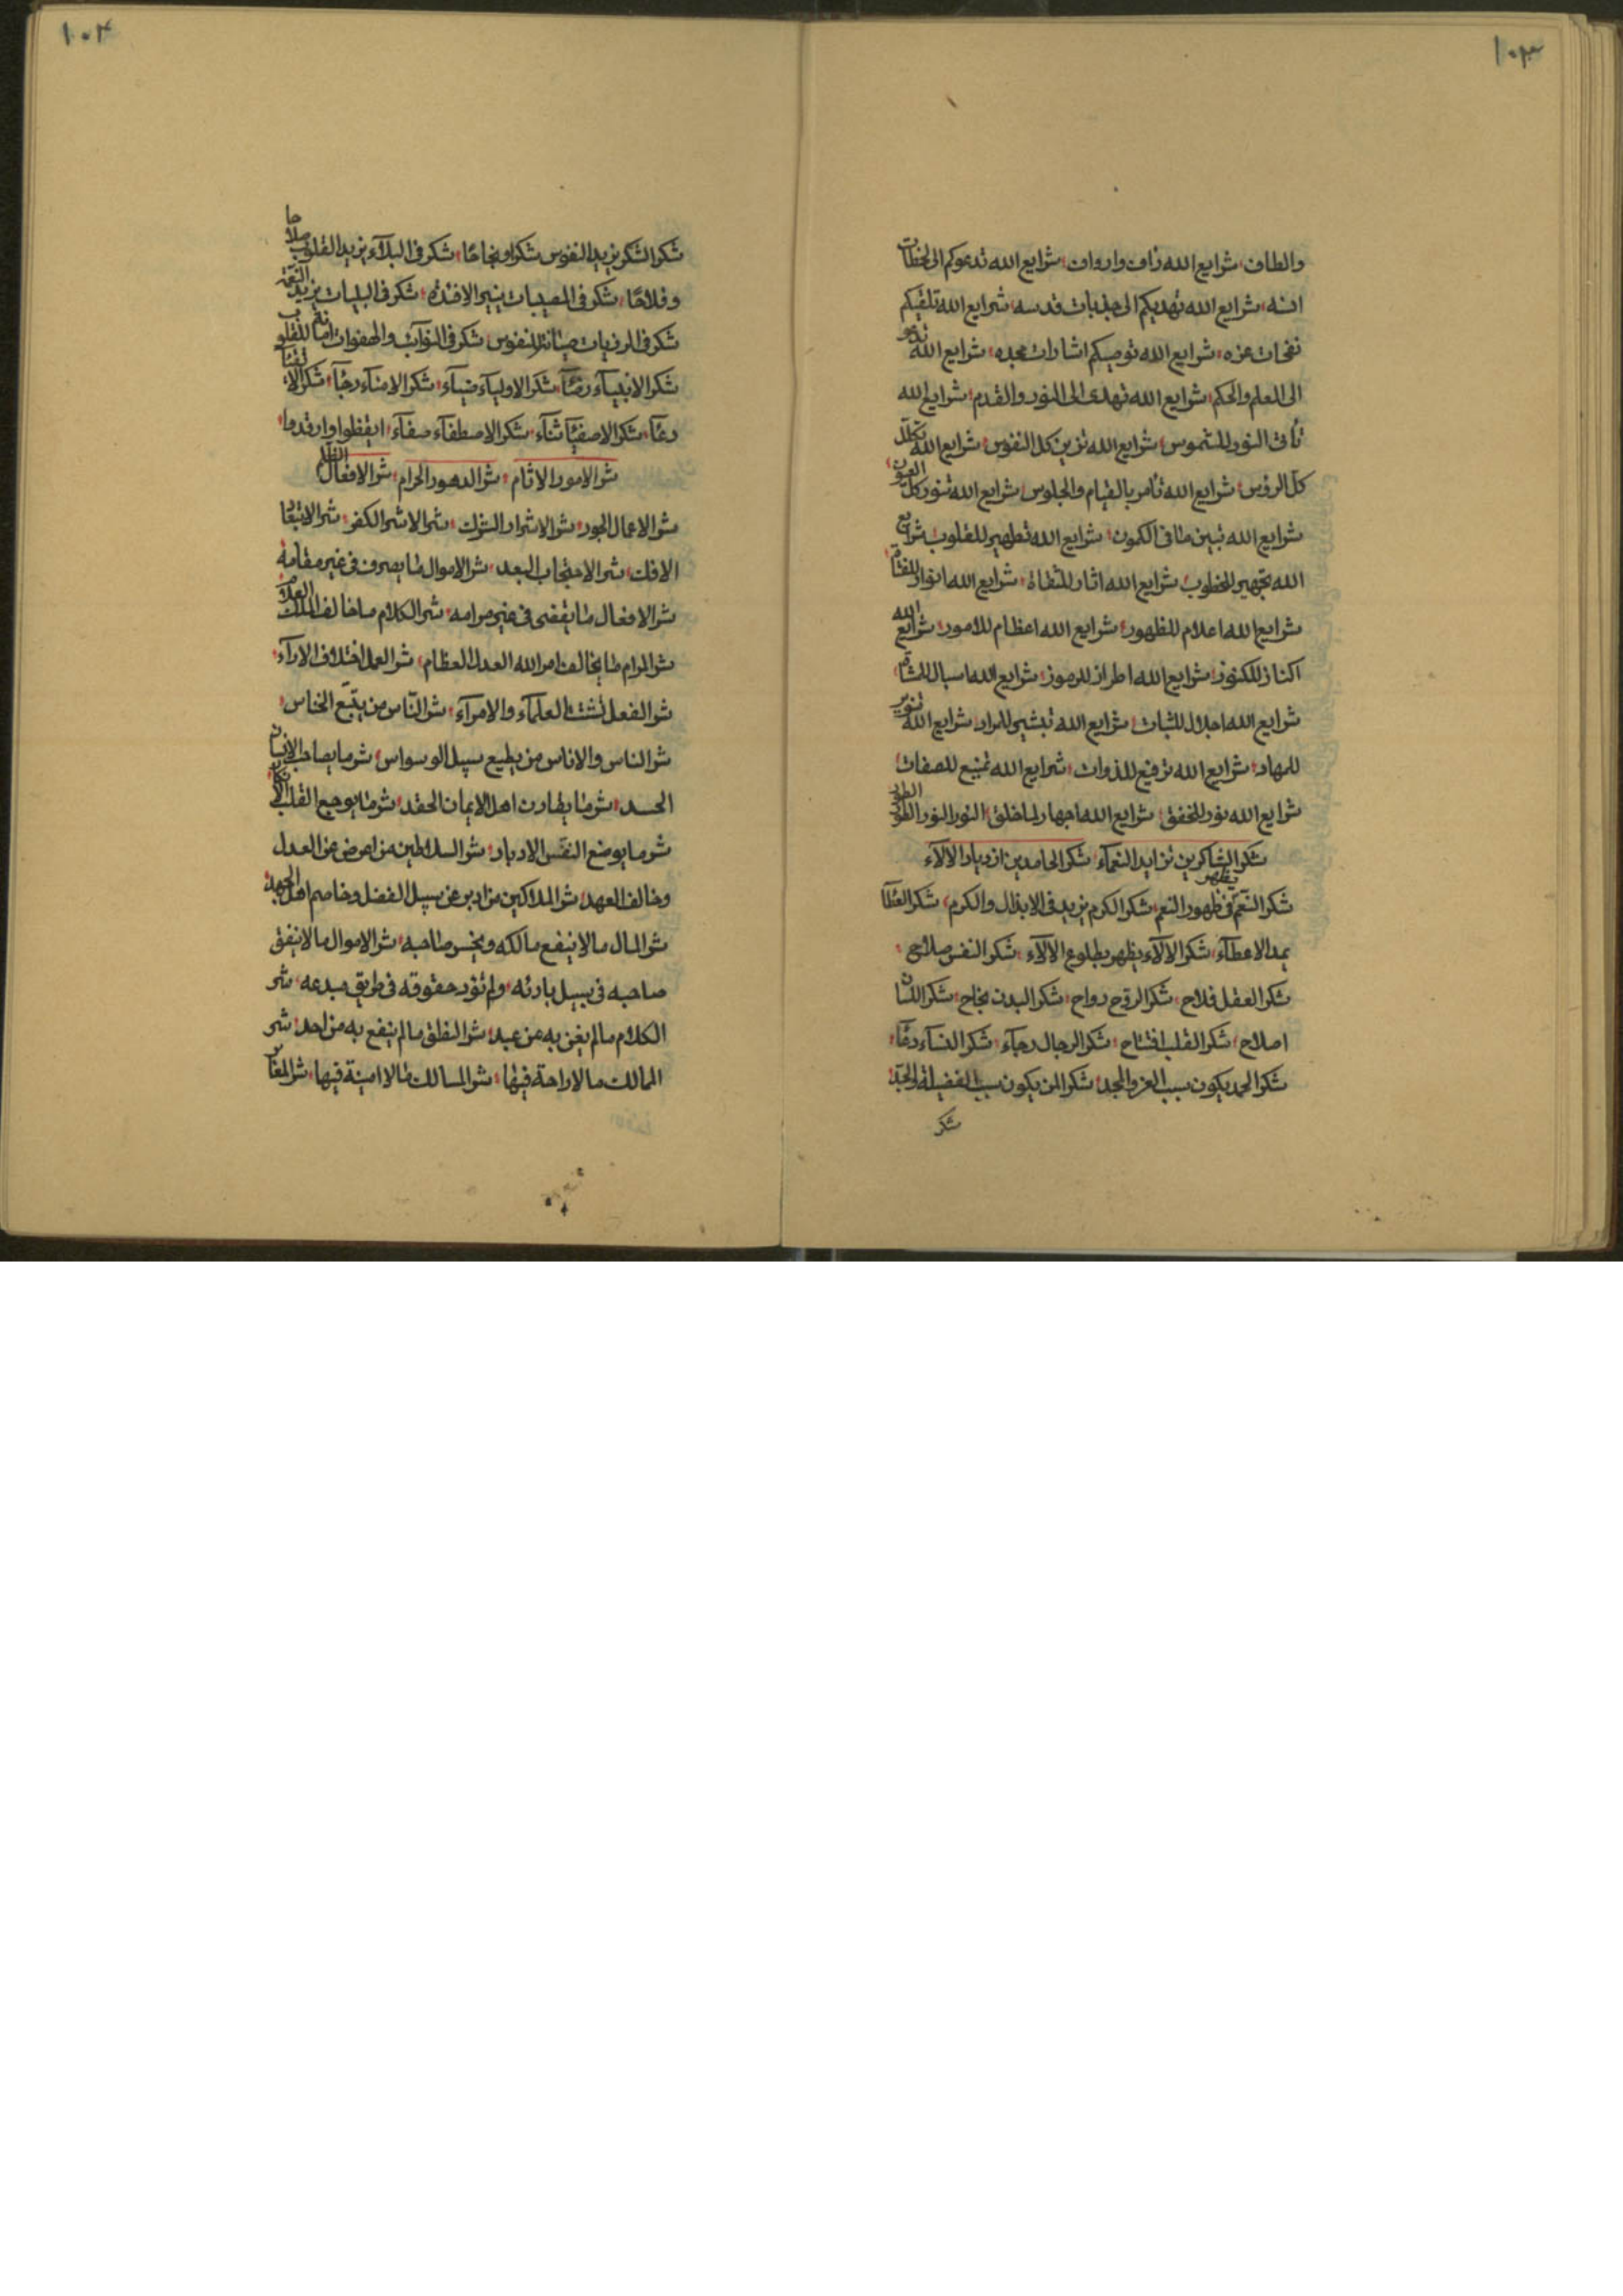 ١٠٣
والطاف شرايع الله زاف واروف شرايع الله تدعوكم الى لحظات
انسه شرايع الله تهديكم الى جذبات قدسه شرايع الله تلقيكم
نفحات عزه شرايع الله توصيكم اشارات مجده شرايع الله تدعو
الى العلم والحكم شرايع الله تهدى الى النور والقدم شرايع الله
تأتى النور للشموس شرايع الله تزين كل النفوس شرايع الله تكلل
كل الرؤس شرايع الله تأمر بالقيام والجلوس شرايع الله تنور كل العيون
شرايع الله تبين ما فى الكمون شرايع الله تطهير للقلوب شرايع
الله تجهير للخطوب شرايع الله اثار شرايع الله انوار
شرايع الله اعلام للظهور شرايع الله اعظام للامور شرايع الله
اكناز للكنوز شرايع الله اطراز للرموز شرايع الله اسبال
شرايع الله اجلال للثبات شرايع الله تبشير للمراد شرايع الله تنوير
للمهاد شرايع الله ترفيع للذوات شرايع الله تمنيع للصفات
شرايع الله نور للخفق شرايع الله اجهار لما خلق النور النور الطور الطور
شكر الشاكرين تزايد النعمآء شكر الحامدين ازدياد الالآء
شكر النعم يظهر فى ظهور النعم شكر الكرم يزيد فى الابذال والكرم شكر العطآ
يمد الاعطآء شكر الالآء يظهر بطلوع الالآء شكر النفس صلاح
شكر العقل فلاح شكر الروح رواح شكر البدن نجاح شكر اللسان
اصلاح شكر القلب افتتاح شكر الرجال رجآء شكر النسآء دعآء
شكر الحمد يكون سبب العز والمجد شكر المن يكون سبب الفضيلة والجد
شكر
١٠٤
شكر الشكر يزيد النفوس شكرا ونجاحا شكر فى البلآء يزيد القلوب صلاحا
وفلاحا شكر فى المصيبات ينير الافئدة شكر فى البليات يزيد النعمة
شكر فى الرزيات صيانة للنفوس شكر فى النوآئب والهفوات امانة للقلوب
شكر الانبيآء رضآء شكر الاوليآء ضيآء شكر الامنآء رجآء شكر
دعآء شكر الاصفيآء ثنآء شكر الاصطفآء صفآء ايقظوا وارقدوا
شر الامور الاثام شر الدهور الحرام شر الافعال الظلم
شر الاعمال الجور شر الاشرار الشرك شر الاشر الكفر شر
الافك شر الاحتجاب البعد شر الاموال ما يصرف فى غير مقامه
شر الافعال ما يقضى فى غير مرامه شر الكلام ما خالف الملك العلام
شر المرام ما يخالف امر الله العدل العظام شر العمل اختلاف الارآء
شر الفعل تشتت العلمآء والامرآء شر النّاس من يتبّع الخناس
شر الناس والاناس من يطيع سبيل الوسواس شر ما يصاحب الانسان
الحسد شر ما يطارن اهل الايمان الحقد شر ما يوجع القلب
شر ما يوضع النفس الادبار شر السلاطين من اعرض عن العدل
وخالف العهد شر الملاكين من ادبر عن سبيل الفضل وخاصم اهل
شر المال ما لا ينفع مالكه ويخسر صاحبه شر الاموال ما لا ينفق
صاحبه فى سبيل بارئه ولم تؤد حقوقه فى طريق مبدعه شر
الكلام ما لم يغن به من عبد شر النطق ما لم ينفع به من احد شر
الممالك ما لا راحة فيها شر المسالك ما لا امنية فيها شر